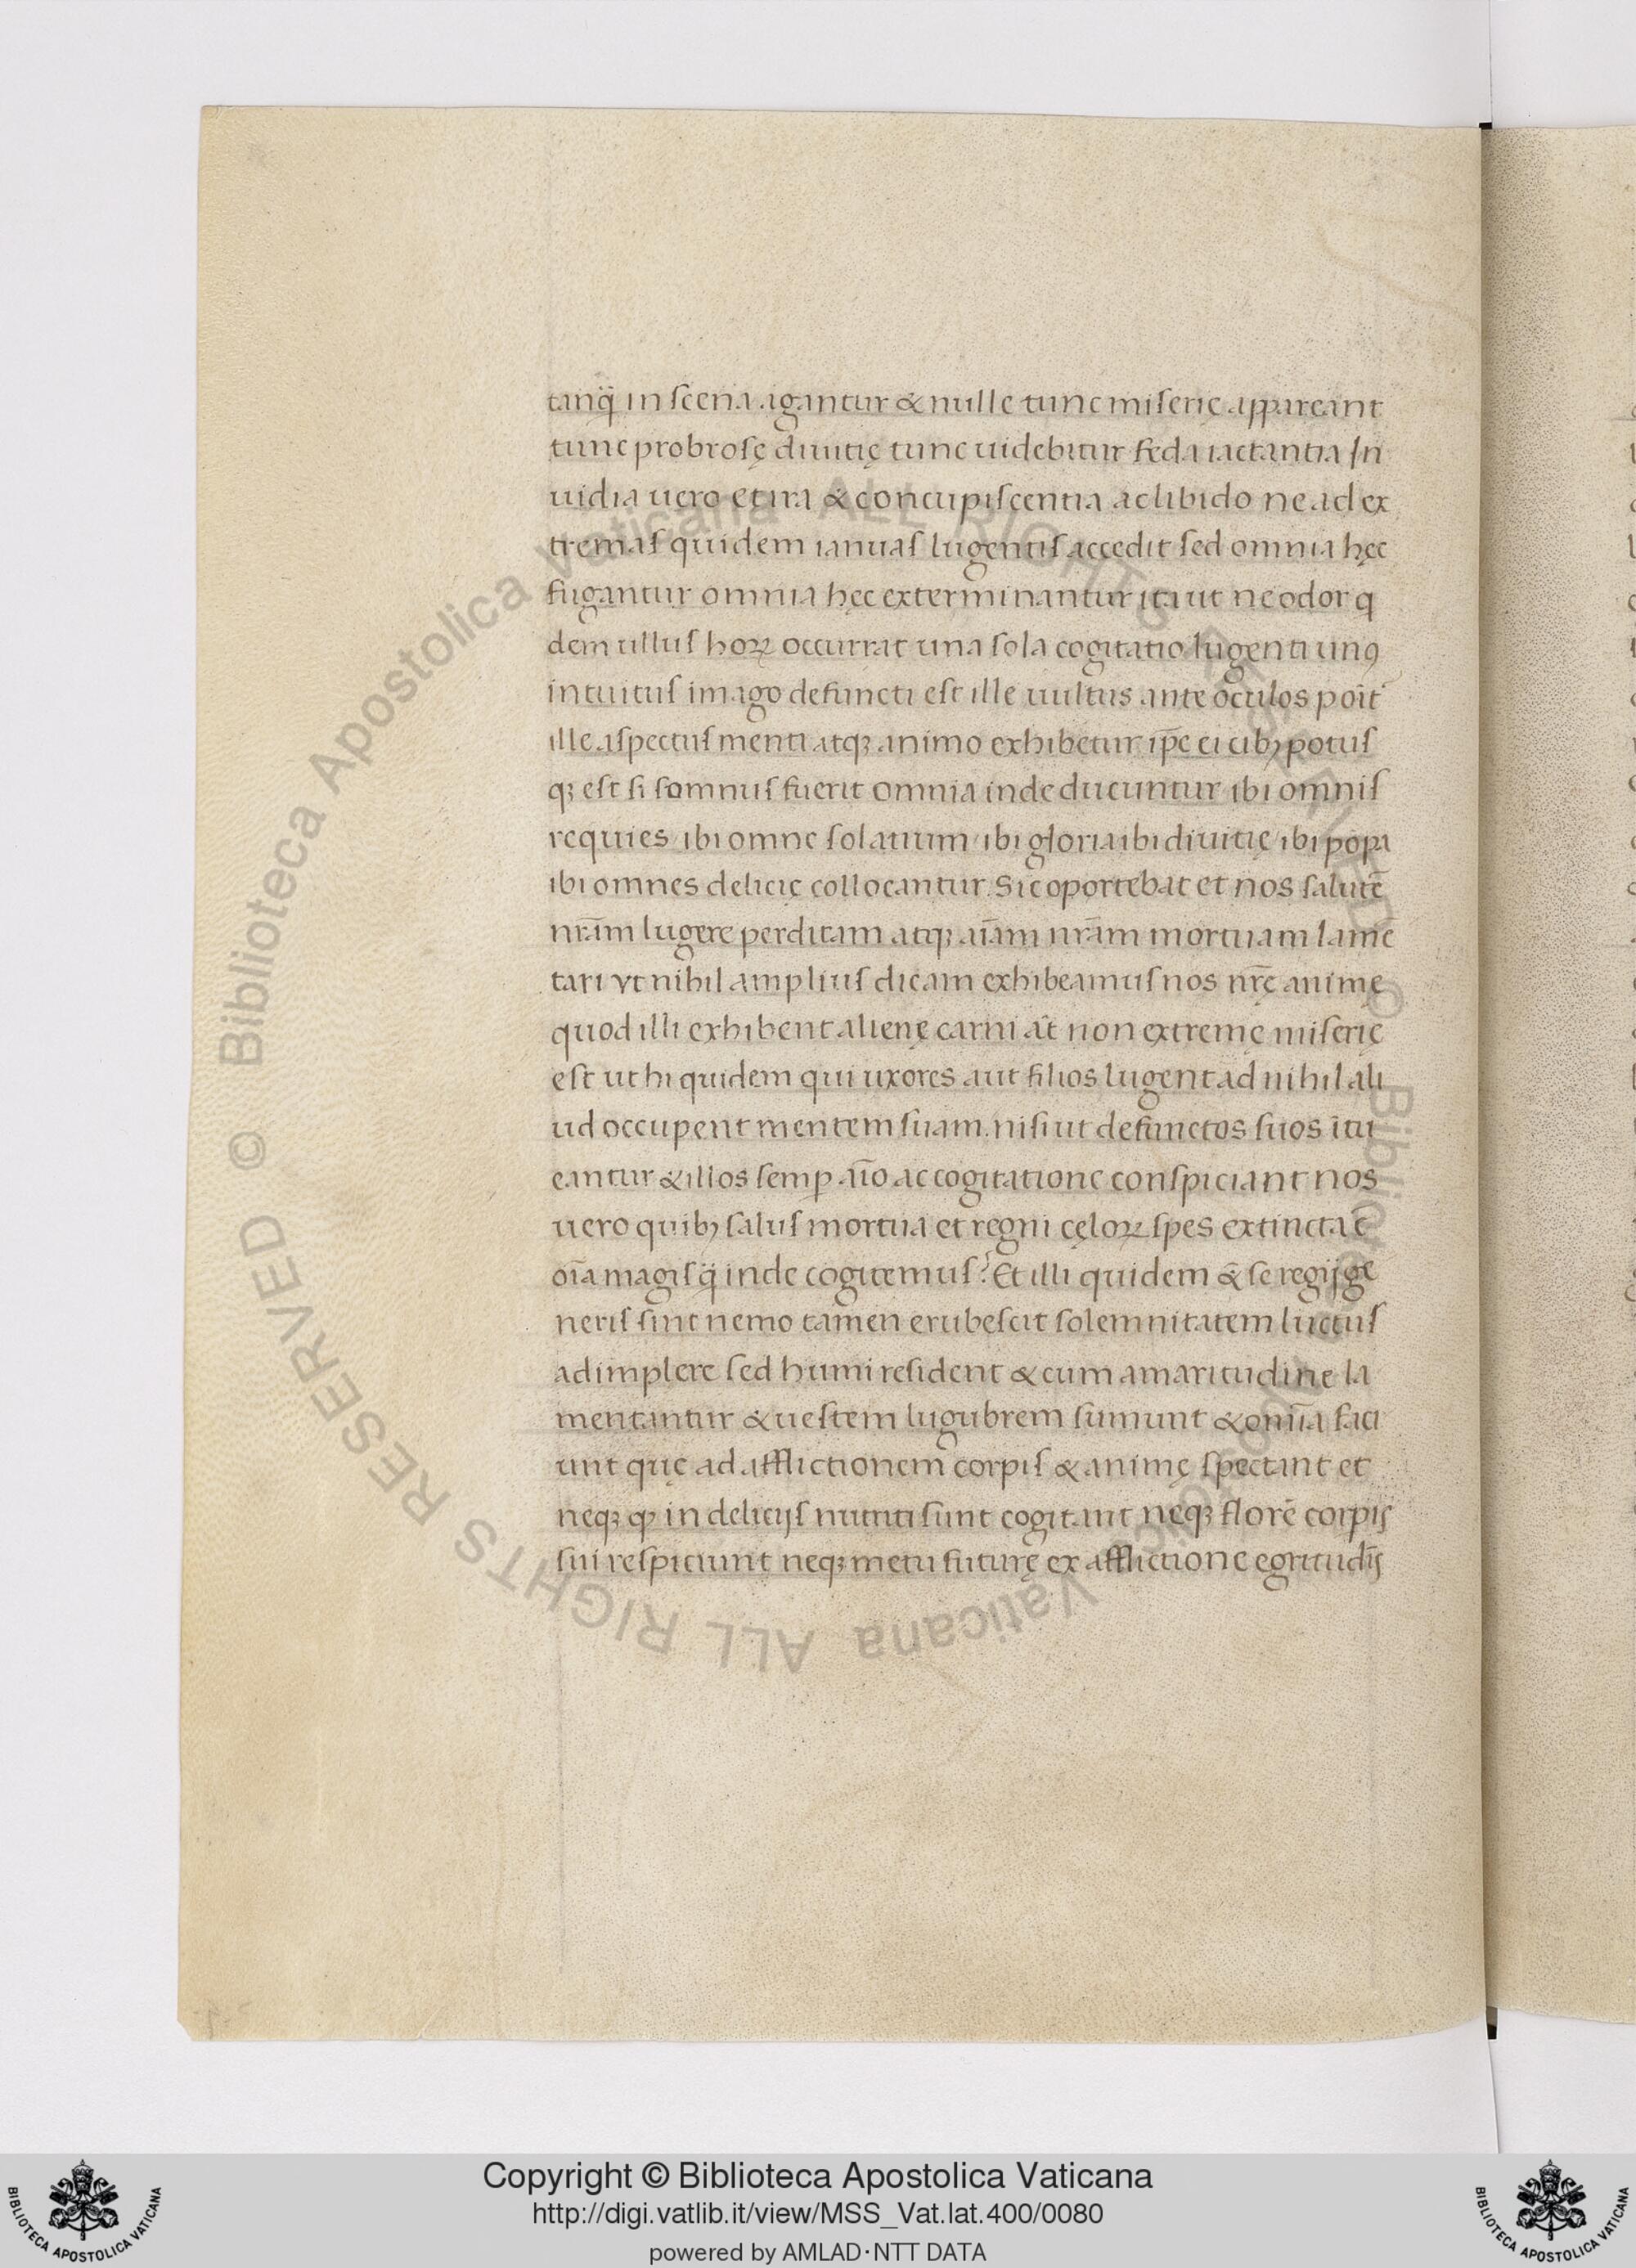 tanq̃ in scena agantur & nulle tunc miserię appareant
tunc probrosę diuitię tunc uidebitur feda iactantia In
uidia uero et ira & concupiscentia ac libido ne ad ex
tremas quidem ianuas lugentis accedit sed omnia hęc
fugantur omnia hęc exterminantur ita ut ne odor q
dem ullus hoꝝ occurrat una sola cogitatio lugenti unꝰ
intuitus imago defuncti est ille uultus ante oculos poĩt
ille aspectus menti atqꝫ animo exhibetur ip̃e ei cibꝫ potus
qꝫ est si somnus fuerit omnia inde ducuntur ibi omnis
requies / ibi omne solatium / ibi gloria ibi diuitię / ibi pōpa
ibi omnes delicię collocantur. Sic oportebat et nos salutē
nr̃am lugere perditam atqꝫ aĩam nr̃am mortuam lamē
tari vt nihil amplius dicam exhibeamus nos nr̃ę animę
quod illi exhibent alienę carni aũt non extremę miserię
est ut hi quidem qui uxores aut filios lugent ad nihil ali
ud occupent mentem suam nisi ut defunctos suos ĩtu
eantur & illos semꝑ aĩo ac cogitatione conspiciant nos
uero quibꝫ salus mortua et regni cęloꝝ spes extincta ē
oĩa magis q̃ inde cogitemus? Et illi quidem & se regij ge
neris sint nemo tamen erubescit solemnitatem luctus
adimplere sed humi resident & cum amaritudine la
mentantur & uestem lugubrem sumunt & om̃ia faci
unt quę ad afflictionem corpis & animę spectant et
neqꝫ ꝙ in delicijs nutriti sunt cogitant neqꝫ florē corpis
sui respiciunt neqꝫ metu futurę ex afflictione egritudĩs
© Biblioteca Apostolica Vaticana ALL RIGHTS RESERVED
© Biblioteca Apostolica Vaticana ALL RIGHTS RESERVED
Copyright © Biblioteca Apostolica Vaticana
http://digi.vatlib.it/view/MSS_Vat.lat.400/0080
powered by AMLAD·NTT DATA
BIBLIOTECA APOSTOLICA VATICANA
BIBLIOTECA APOSTOLICA VATICANA